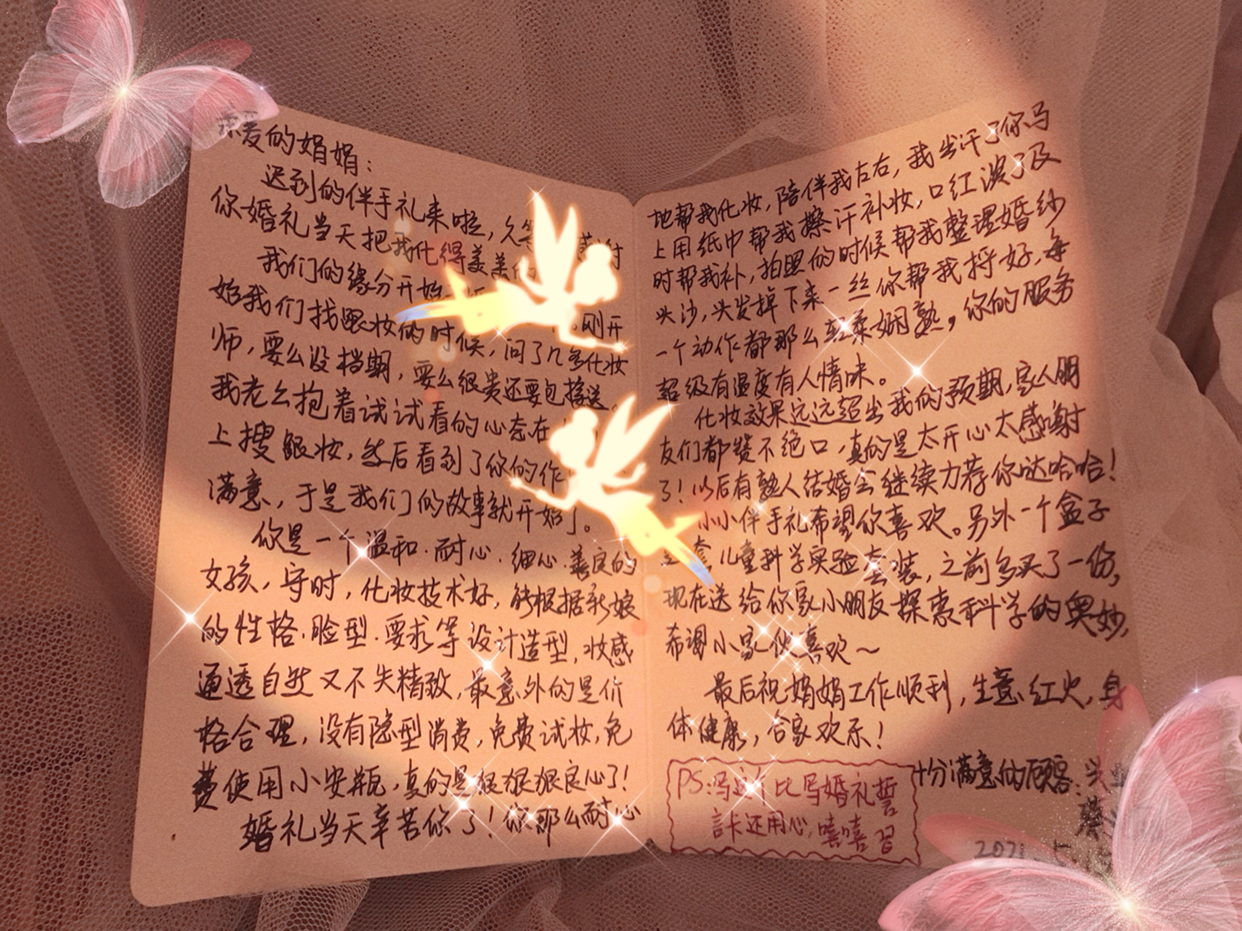 亲爱的娟娟：
迟到的伴手礼来啦，久等
你婚礼当天把我化得美美
我们的缘分开始 。刚开
始我们找跟妆的时候，问了几多化妆
师，要么没档期，要么很贵还要包接送。
我老公抱着试试看的心态在
上搜跟妆，然后看到了你的作
满意，于是我们的故事就开始了。
你是一个温和·耐心·细心·善良的
女孩，守时，化妆技术好，能根据新娘
的性格·脸型·要求等设计造型，妆感
通透自然又不失精致，最意外的是价
格合理，没有隐型消费，免费试妆，免
费使用小安瓶，真的是很狠狠良心了！
婚礼当天辛苦你了！你那么耐心
地帮我化妆，陪伴我左右，我出汗了你马
上用纸巾帮我擦汗补妆，口红淡了及
时帮我补，拍照的时候帮我整理婚纱
头沙，头发掉下来一丝你帮我捋好，每
一个动作都那么轻柔娴熟，你的服务
超级有温度有人情味。
化妆效果远远超出我的预期，家人朋
友们都赞不绝口，真的是太开心太感谢
了！以后有熟人结婚会继续力荐你哒哈哈！
小小伴手礼希望你喜欢。另外一个盒子
是套儿童科学实验套装，之前多买了一份，
现在送给你家小朋友探索科学的奥妙，
希望小家伙喜欢～
最后祝娟娟工作顺利，生意红火，身
体健康，合家欢乐！
十分满意的顾客：
2021.5.
PS：写这个比写婚礼誓
言卡还用心，嘻嘻